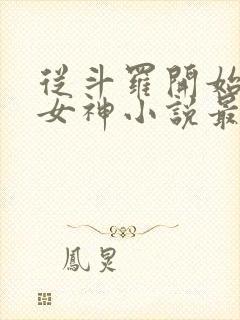 從斗羅開始
女神小説最
鳳炅